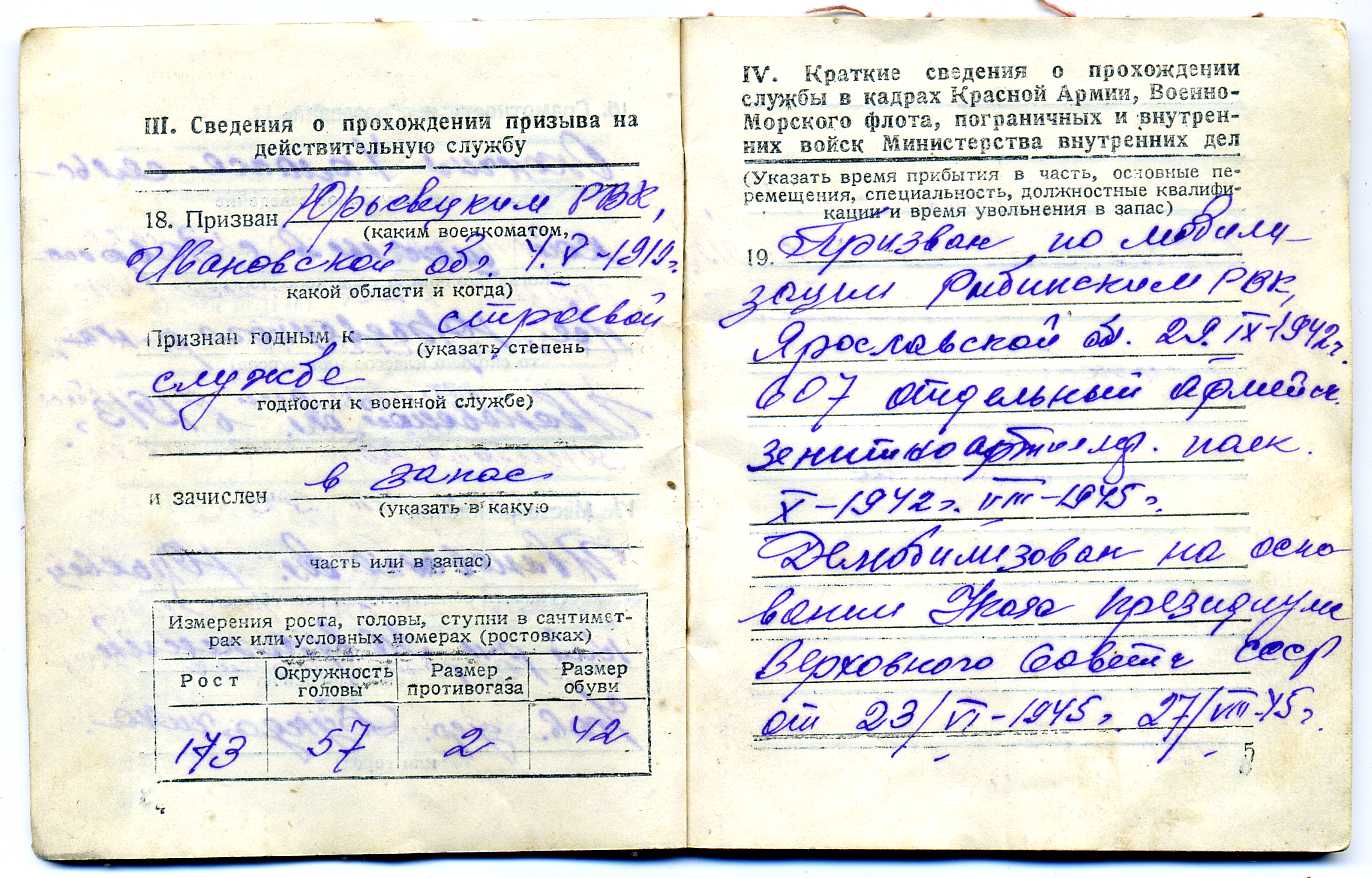 III. Сведения о прохождении призыва на
действительную службу
18. Призван Юрьевецким РВК,
(каким военкоматом,
Ивановской обл. V-1919г.
какой области и когда)
Признан годным к строевой
(указать степень
службе
годности к военной службе)
и зачислен в запас
(указать в какую
часть или в запас)
Измерения роста, головы, ступни в сантимет-
рах или условных номерах (ростовках)
Рост Окружность головы Размер противогаза Размер обуви
173 57 2 42
IV. Краткие сведения о прохождении
службы в кадрах Красной Армии, Военно-
Морского флота, пограничных и внутрен-
них войск Министерства внутренних дел
(Указать время прибытия в часть, основные пе-
ремещения, специальность, должностные квалифи-
кации и время увольнения в запас)
19. Призван по мобили-
зации Рыбинским РВК,
Ярославской об. 29.IX-1942г.
607 отдельный армейск.
зенитно полк.
X-1942г. VIII-1945г.
Демобилизован на осно
вании Указа Президиума
Верховного Совета СССР
от 23/VI-1945г. 27/VIII-45г.
5